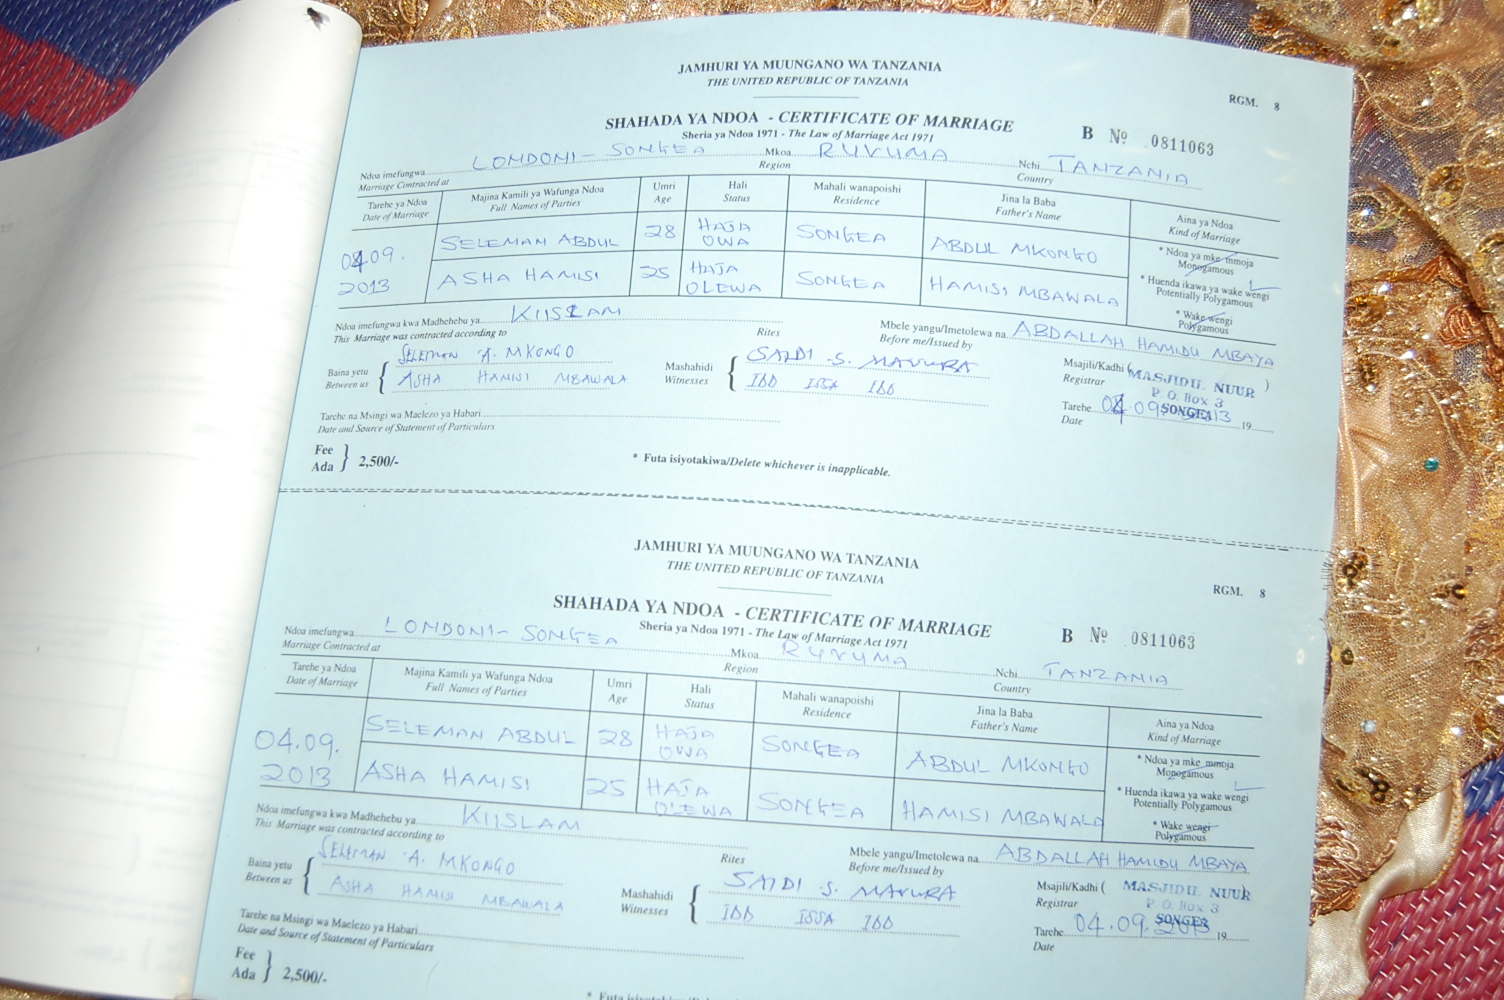 JAMHURI YA MUUNGANO WA TANZANIA
THE UNITED REPUBLIC OF TANZANIA
RGM. 8
SHAHADA YA NDOA - CERTIFICATE OF MARRIAGE
Sheria ya Ndoa 1971 - The Law of Marriage Act 1971
B No 0811063
Ndoa imefungwa LONDONI - SONGEA Mkoa RUVUMA Nchi TANZANIA
Marriage Contracted at Region Country
Tarehe ya Ndoa Majina Kamili ya Wafunga Ndoa Umri Hali Mahali wanapoishi Jina la Baba Aina ya Ndoa
Date of Marriage Full Names of Parties Age Status Residence Father's Name Kind of Marriage
04.09. SELEMAN ABDUL 28 HAJA OWA SONGEA ABDUL MKONGO
2013 ASHA HAMISI 25 HAJA OLEWA SONGEA HAMISI MBAWALA
* Ndoa ya mke mmoja
Monogamous
* Huenda ikawa ya wake wengi
Potentially Polygamous
* Wake wengi
Polygamous
Ndoa imefungwa kwa Madhehebu ya KIISLAM
This Marriage was contracted according to Rites
Mbele yangu/Imetolewa na ABDALLAH HAMIDU MBAYA
Before me/Issued by
Baina yetu SELEMAN A. MKONGO
Between us ASHA HAMISI MBAWALA
Mashahidi SAIDI S. MAVURA
Witnesses IDD ISSA IDD
Msajili/Kadhi ( MASJIDIL NUUR )
Registrar P. O. Box 3
SONGEA
Tarehe 04.09.2013 19
Date
Tarehe na Msingi wa Maelezo ya Habari
Date and Source of Statement of Particulars
Fee
Ada } 2,500/-
* Futa isiyotakiwa/Delete whichever is inapplicable.
JAMHURI YA MUUNGANO WA TANZANIA
THE UNITED REPUBLIC OF TANZANIA
RGM. 8
SHAHADA YA NDOA - CERTIFICATE OF MARRIAGE
Sheria ya Ndoa 1971 - The Law of Marriage Act 1971
B No 0811063
Ndoa imefungwa LONDONI - SONGEA Mkoa RUVUMA Nchi TANZANIA
Marriage Contracted at Region Country
Tarehe ya Ndoa Majina Kamili ya Wafunga Ndoa Umri Hali Mahali wanapoishi Jina la Baba Aina ya Ndoa
Date of Marriage Full Names of Parties Age Status Residence Father's Name Kind of Marriage
04.09. SELEMAN ABDUL 28 HAJA OWA SONGEA ABDUL MKONGO
2013 ASHA HAMISI 25 HAJA OLEWA SONGEA HAMISI MBAWALA
* Ndoa ya mke mmoja
Monogamous
* Huenda ikawa ya wake wengi
Potentially Polygamous
* Wake wengi
Polygamous
Ndoa imefungwa kwa Madhehebu ya KIISLAM
This Marriage was contracted according to Rites
Mbele yangu/Imetolewa na ABDALLAH HAMIDU MBAYA
Before me/Issued by
Baina yetu SELEMAN A. MKONGO
Between us ASHA HAMISI MBAWALA
Mashahidi SAIDI S. MAVURA
Witnesses IDD ISSA IDD
Msajili/Kadhi ( MASJIDIL NUUR )
Registrar P. O. Box 3
SONGEA
Tarehe 04.09.2013 19
Date
Tarehe na Msingi wa Maelezo ya Habari
Date and Source of Statement of Particulars
Fee
Ada } 2,500/-